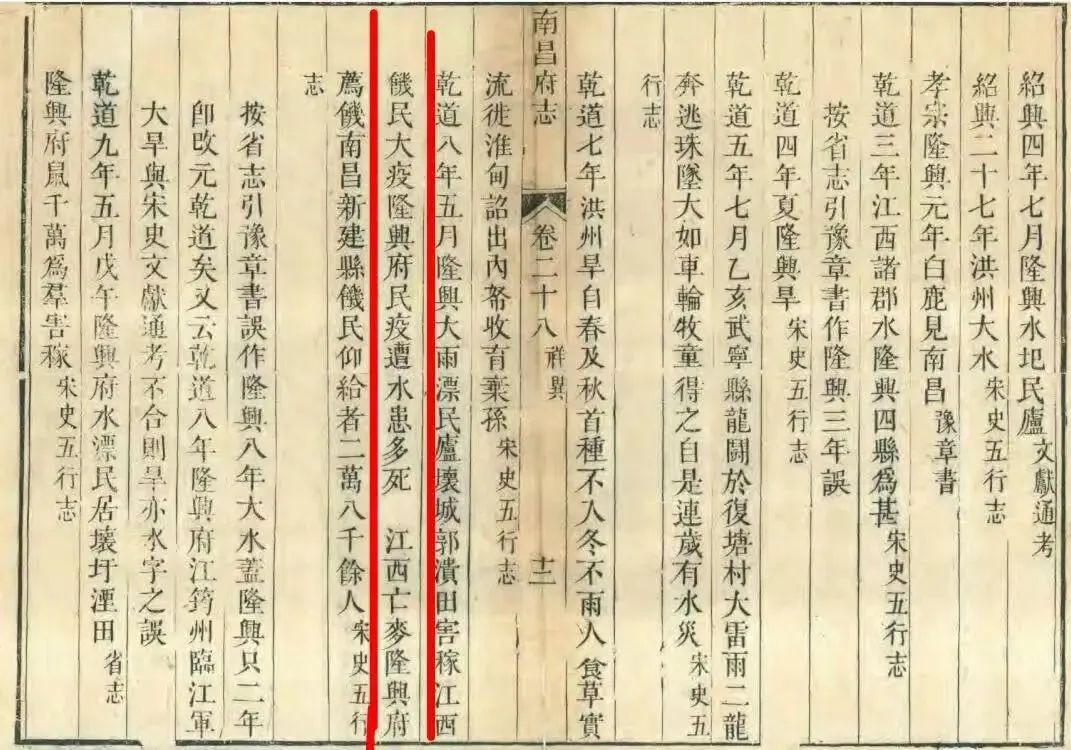 紹興四年七月隆興水圯民廬文獻通考
紹興二十七年洪州大水宋史五行志
孝宗隆興元年白鹿見南昌豫章書
乾道三年江西諸郡水隆興四縣爲甚宋史五行志
按省志引豫章書作隆興三年誤
乾道四年夏隆興旱宋史五行志
乾道五年七月乙亥武寧縣龍鬭於復塘村大雷雨二龍
奔逃珠墜大如車輪牧童得之自是連歲有水災宋史五
行志
乾道七年洪州旱自春及秋首種不入冬不雨人食草實
南昌府志 卷二十八 祥異 十二
流徙淮甸詔出內帑收育棄孫宋史五行志
乾道八年五月隆興大雨漂民廬壞城郭潰田害稼江西
饑民大疫隆興府民疫遭水患多死 江西亡麥隆興府
薦饑南昌新建縣饑民仰給者二萬八千餘人宋史五行
志
按省志引豫章書誤作隆興八年大水蓋隆興只二年
卽改元乾道矣又云乾道八年隆興府江筠州臨江軍
大旱與宋史文獻通考不合則旱亦水字之誤
乾道九年五月戊午隆興府水漂民居壞圩湮田省志
隆興府鼠千萬爲羣害稼宋史五行志